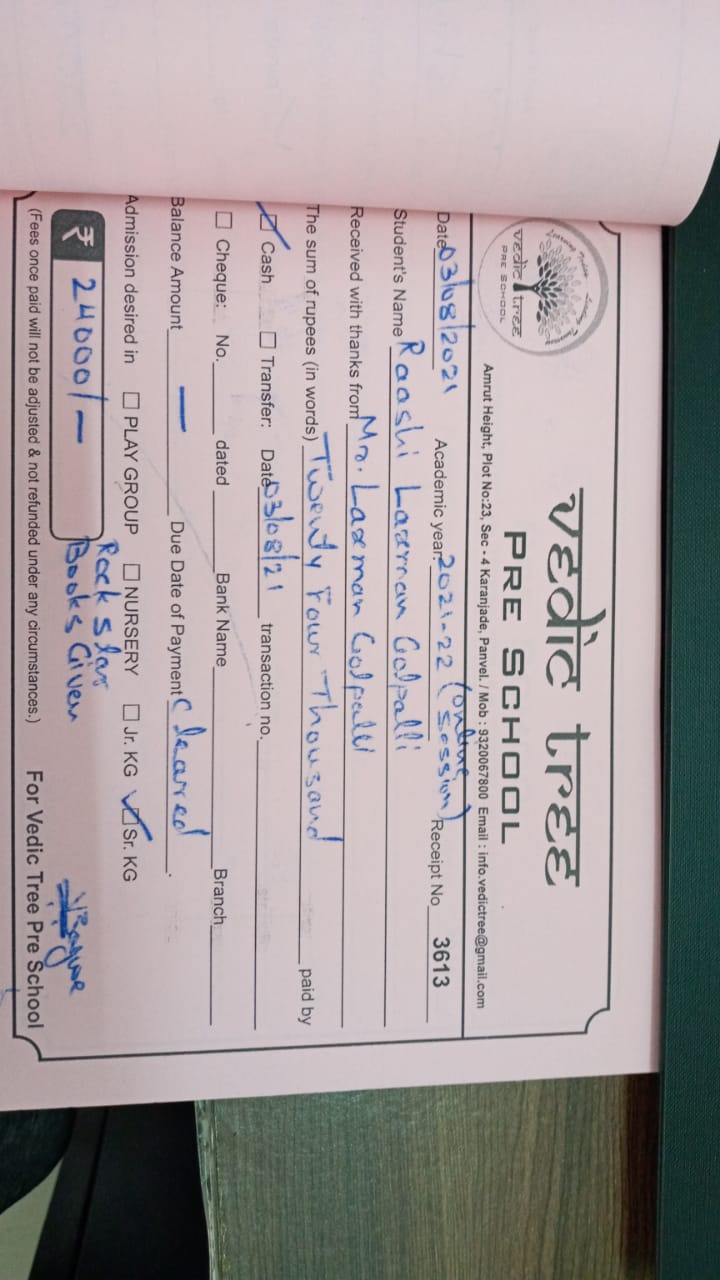 vedic tree
PRE SCHOOL
vedic tree
PRE SCHOOL
Amrut Height, Plot No:23, Sec - 4 Karanjade, Panvel. / Mob : 9320067800 Email : info.vedictree@gmail.com
Date 03/08/2021 Academic year 2021-22 (Online Session) Receipt No 3613
Student's Name Raashi Laxman Golpalli
Received with thanks from Mr. Laxman Golpalli
The sum of rupees (in words) Twenty Four Thousand paid by
Cash Transfer: Date 03/08/21 transaction no.
Cheque: No. dated Bank Name Branch
Balance Amount — Due Date of Payment Cleared.
Admission desired in PLAY GROUP NURSERY Jr. KG Sr. KG
₹ 24000/- Rock star
Books Given
(Fees once paid will not be adjusted & not refunded under any circumstances.) For Vedic Tree Pre School